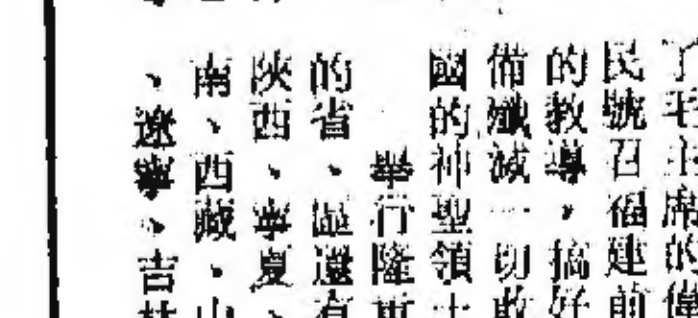 了毛主席的偉
民號召福建前
的教導，搞好
備殲滅一切敢
國的神聖領土
舉行隆重
的省、區還有
陝西、寧夏、
南、西藏、山
、遼寧、吉林